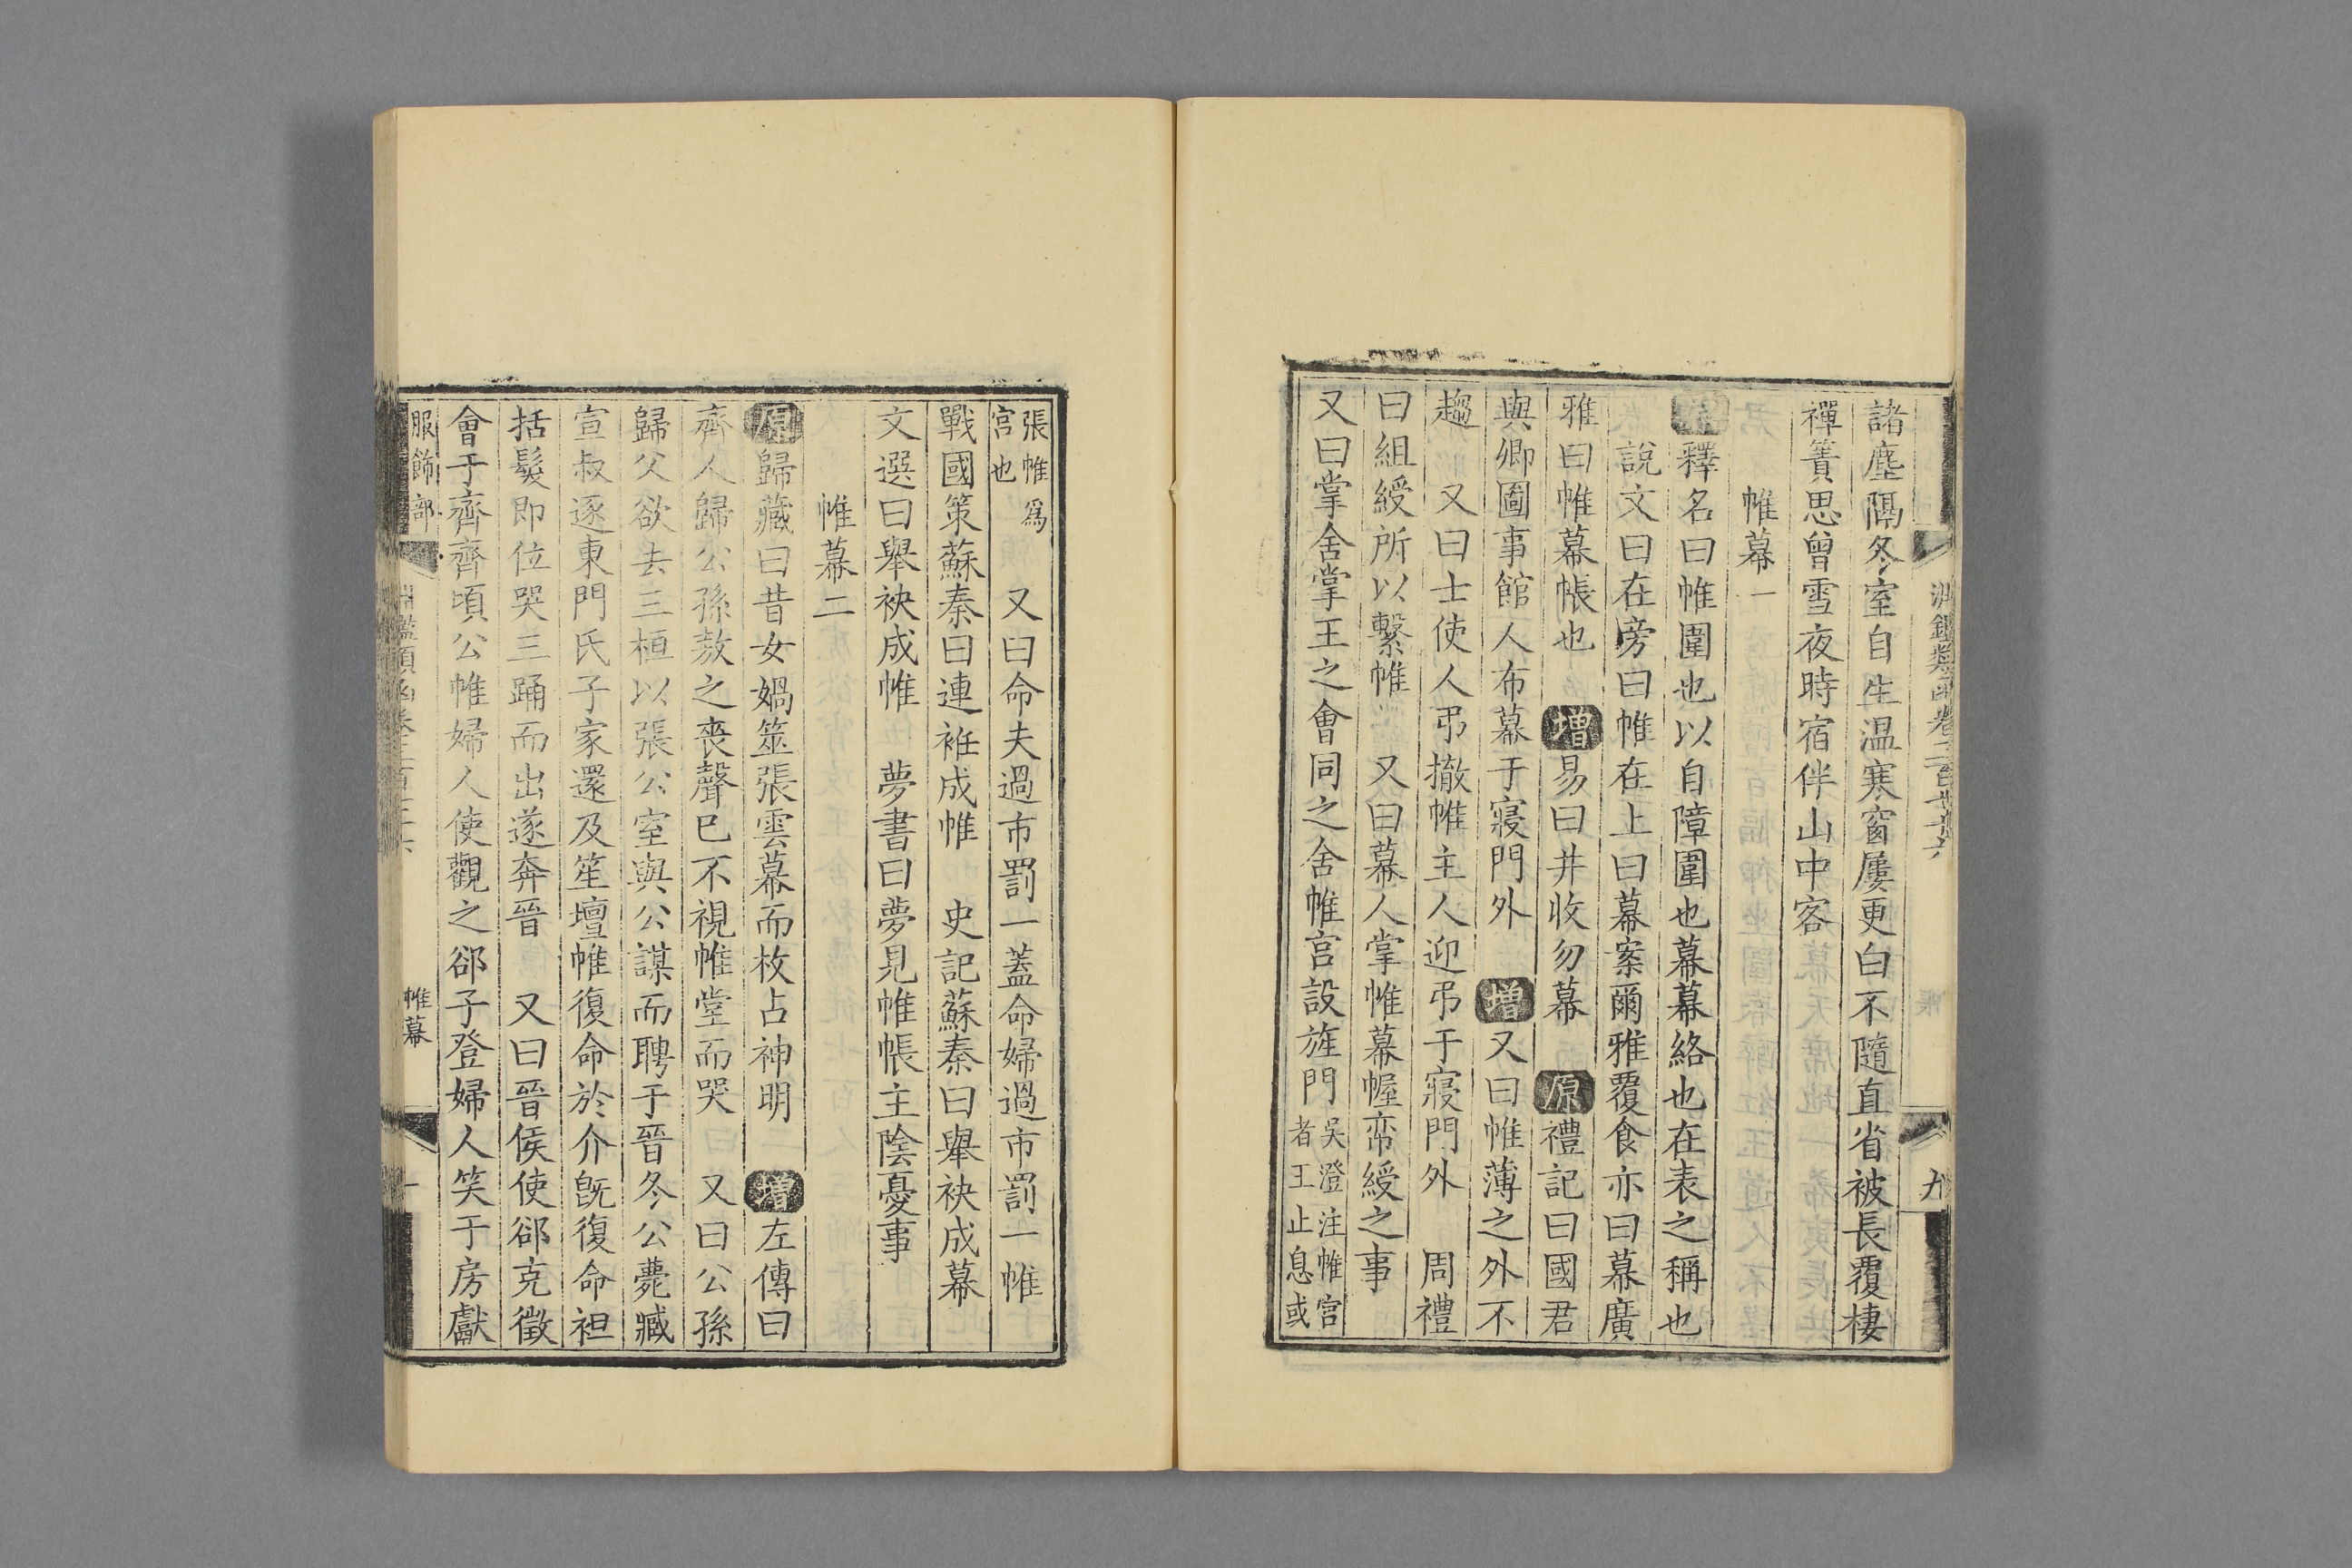 諸塵隔冬室自生温寒窗屢更白不隨直省被長覆棲
禪簀思曾雪夜時宿伴山中客
帷幕一
釋名曰帷圍也以自障圍也幕幕絡也在表之稱也
說文曰在旁曰帷在上曰幕案爾雅覆食亦曰幕廣
雅曰帷幕帳也 增易曰井收勿幕 原禮記曰國君
與卿圖事館人布幕于寢門外 增又曰帷薄之外不
趨 又曰士使人弔撤帷主人迎弔于寢門外 周禮
曰組綬所以繫帷 又曰幕人掌帷幕幄帟綬之事
又曰掌舍掌王之會同之舍帷宫設旌門 吳澄注帷宫
者王止息或
張帷爲
宫也 又曰命夫過市罰一蓋命婦過市罰一帷
戰國策蘇秦曰連袵成帷 史記蘇秦曰舉袂成幕
文選曰舉袂成帷 夢書曰夢見帷帳主陰憂事
帷幕二
原歸藏曰昔女媧筮張雲幕而枚占神明 增左傳曰
齊人歸公孫敖之喪聲已不視帷堂而哭 又曰公孫
歸父欲去三桓以張公室與公謀而聘于晉冬公薨臧
宣叔逐東門氏子家還及笙壇帷復命於介旣復命袒
括髮即位哭三踊而出遂奔晉 又曰晉侯使郤克徵
會于齊齊頃公帷婦人使觀之郤子登婦人笑于房獻
服飾部 帷幕
九